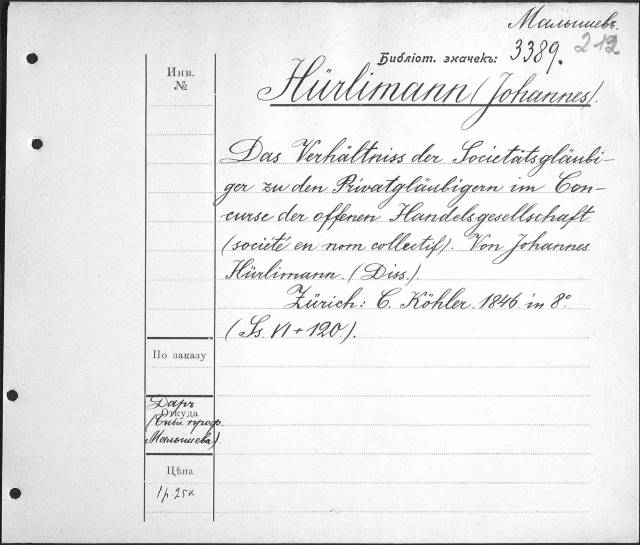 Малышевъ.
Библіот. значекъ: 3389. 212
Инв.
№
Hürlimann (Johannes).
Das Verhältniss der Societätsgläubi-
ger zu den Privatgläubigern im Con-
curse der offenen Handelsgesellschaft
(société en nom collectif). Von Johannes
Hürlimann. (Diss.).
Zürich: C. Köhler. 1846 in 8°
(Ss. VI + 120.).
По заказу
Даръ
Откуда
проф.
Малышева).
Цѣна
1 р. 25 к